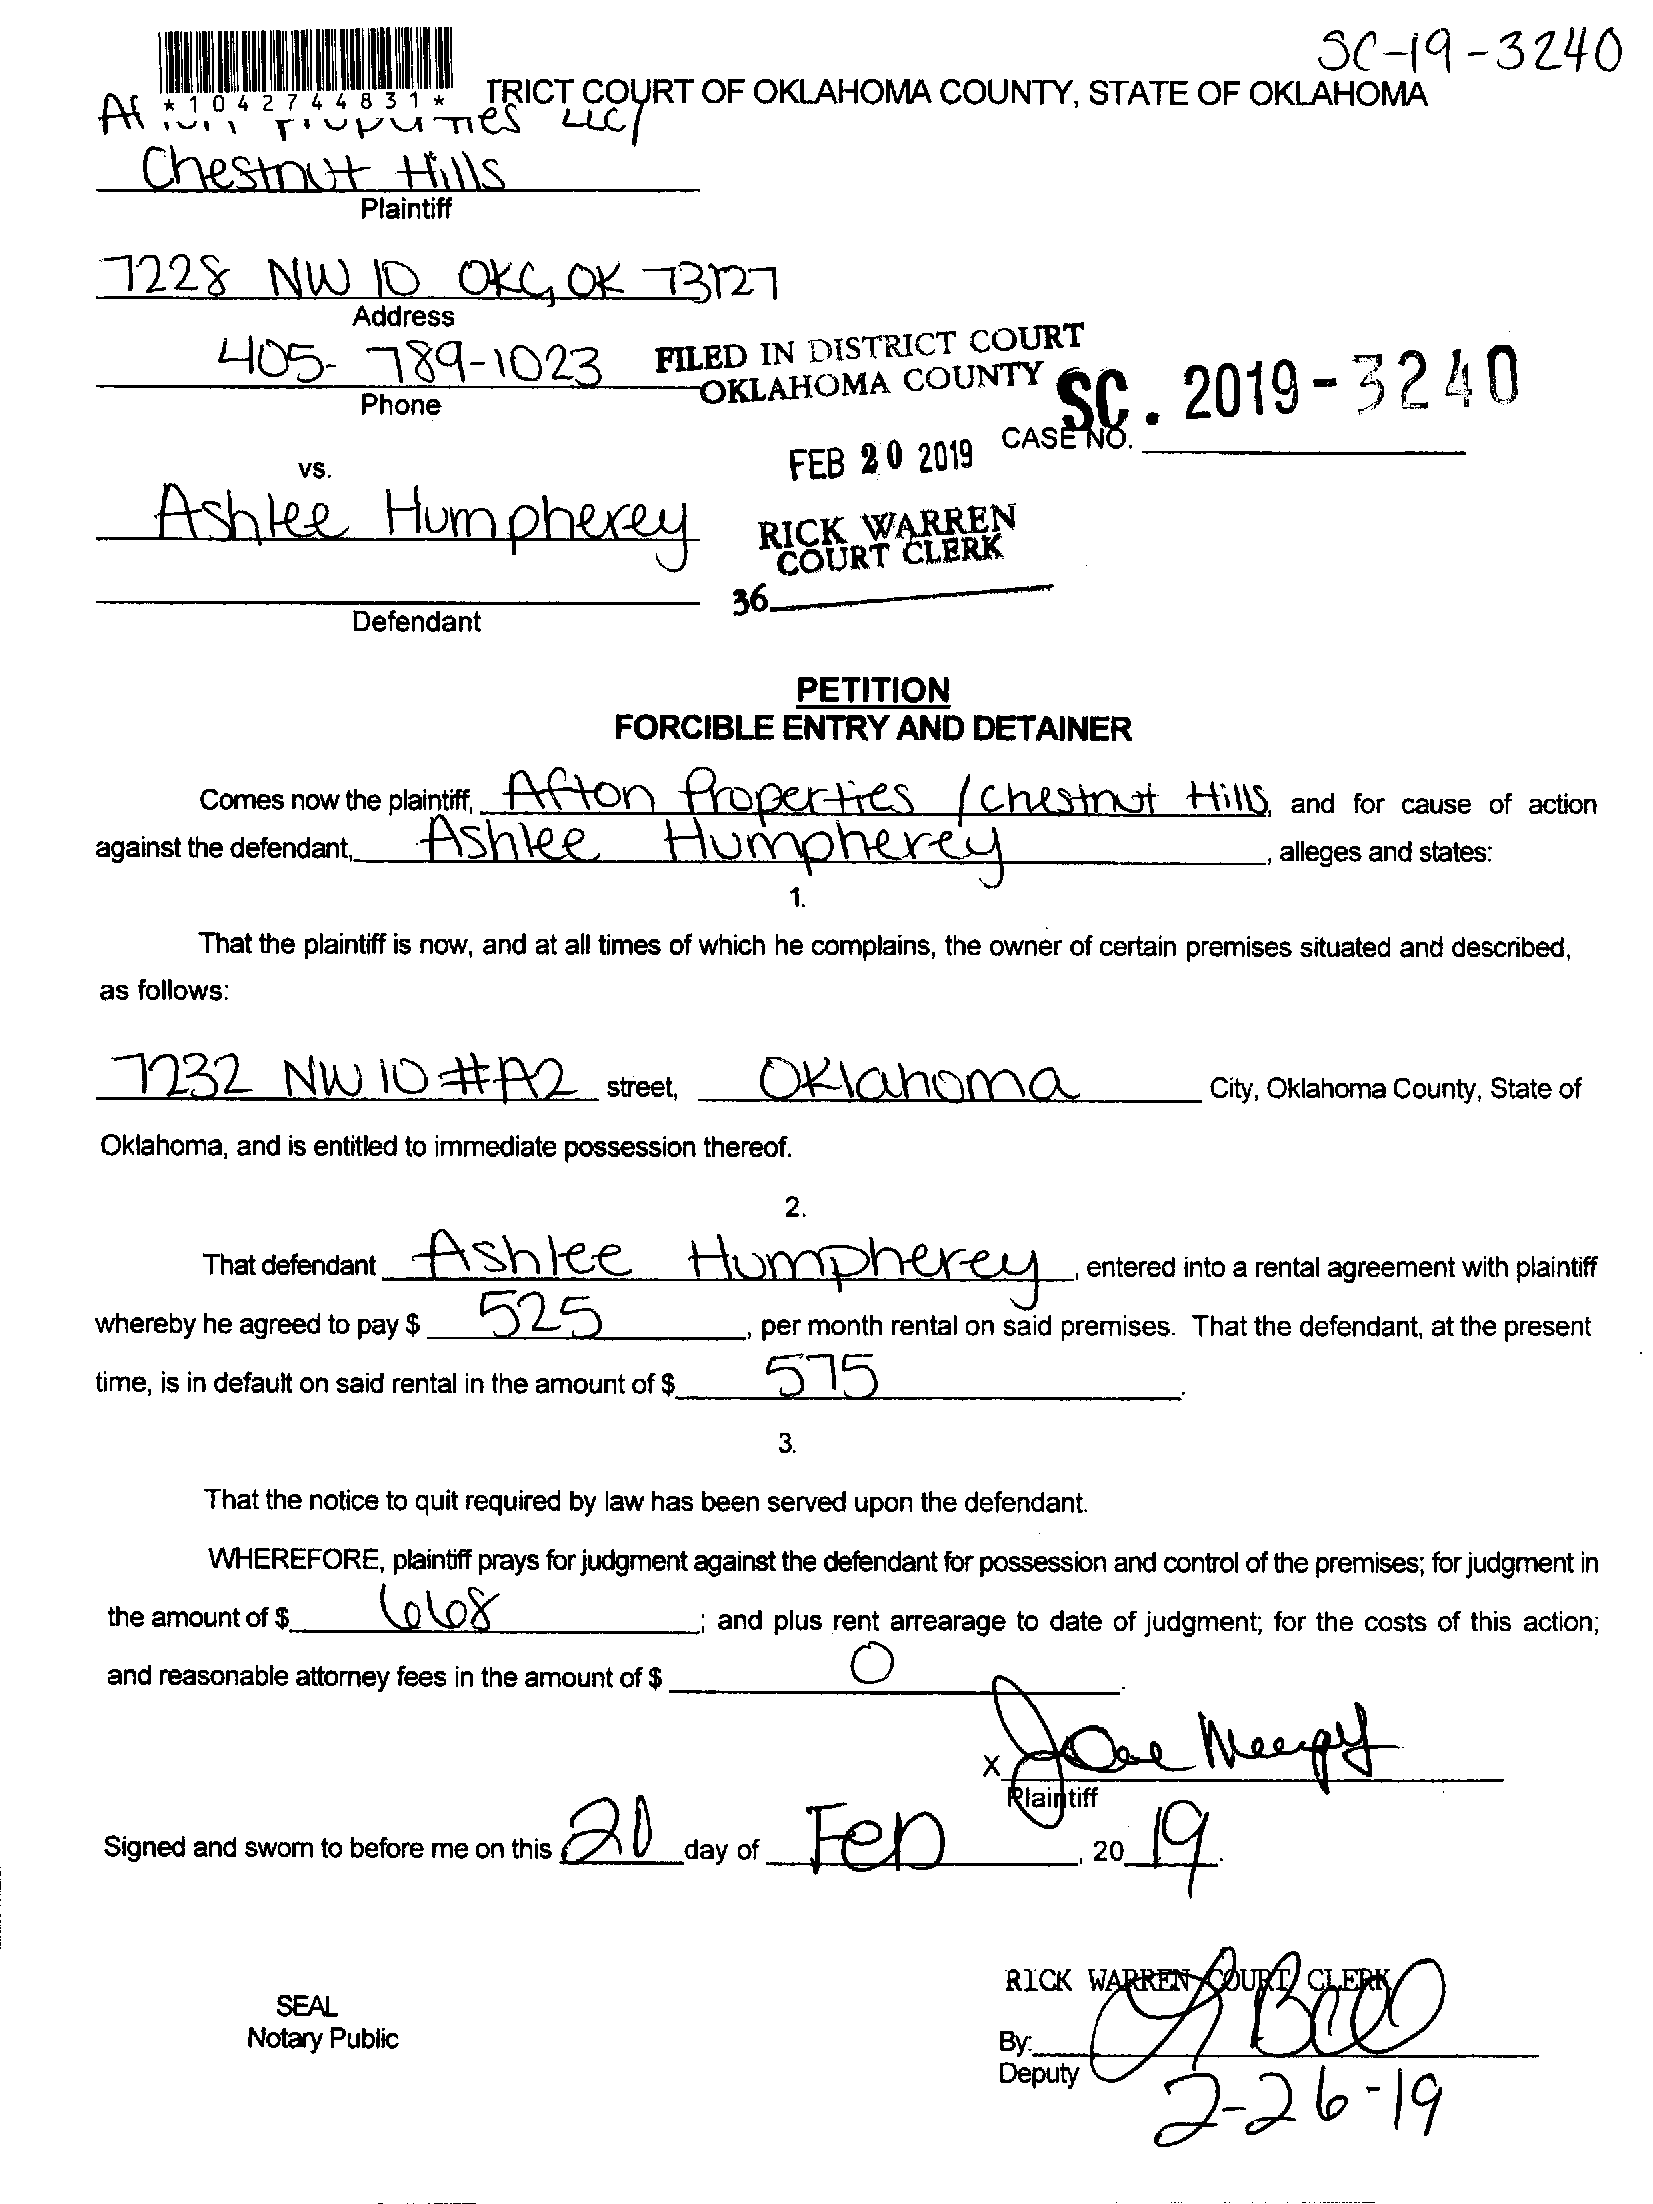 SC-19-3240
*1042744831*
TRICT COURT OF OKLAHOMA COUNTY, STATE OF OKLAHOMA
LLC/
Chestnut Hills
Plaintiff
7228 NW 10 OKC, OK 73127
Address
405-789-1023
Phone
FILED IN DISTRICT COURT
OKLAHOMA COUNTY
SC. 2019-3240
CASE NO.
FEB 20 2019
vs.
Ashlee Humpherey
RICK WARREN
COURT CLERK
36
Defendant
PETITION
FORCIBLE ENTRY AND DETAINER
Comes now the plaintiff, Afton Properties / Chestnut Hills, and for cause of action
against the defendant, Ashlee Humpherey, alleges and states:
1.
That the plaintiff is now, and at all times of which he complains, the owner of certain premises situated and described,
as follows:
7232 NW 10 #A2 street, Oklahoma City, Oklahoma County, State of
Oklahoma, and is entitled to immediate possession thereof.
2.
That defendant Ashlee Humpherey, entered into a rental agreement with plaintiff
whereby he agreed to pay $ 525, per month rental on said premises. That the defendant, at the present
time, is in default on said rental in the amount of $ 575.
3.
That the notice to quit required by law has been served upon the defendant.
WHEREFORE, plaintiff prays for judgment against the defendant for possession and control of the premises; for judgment in
the amount of $ 668; and plus rent arrearage to date of judgment; for the costs of this action;
and reasonable attorney fees in the amount of $ 0.
x
Plaintiff
Signed and sworn to before me on this 20 day of Feb, 2019.
RICK WARREN COURT CLERK
SEAL
Notary Public
By:
Deputy
2-26-19